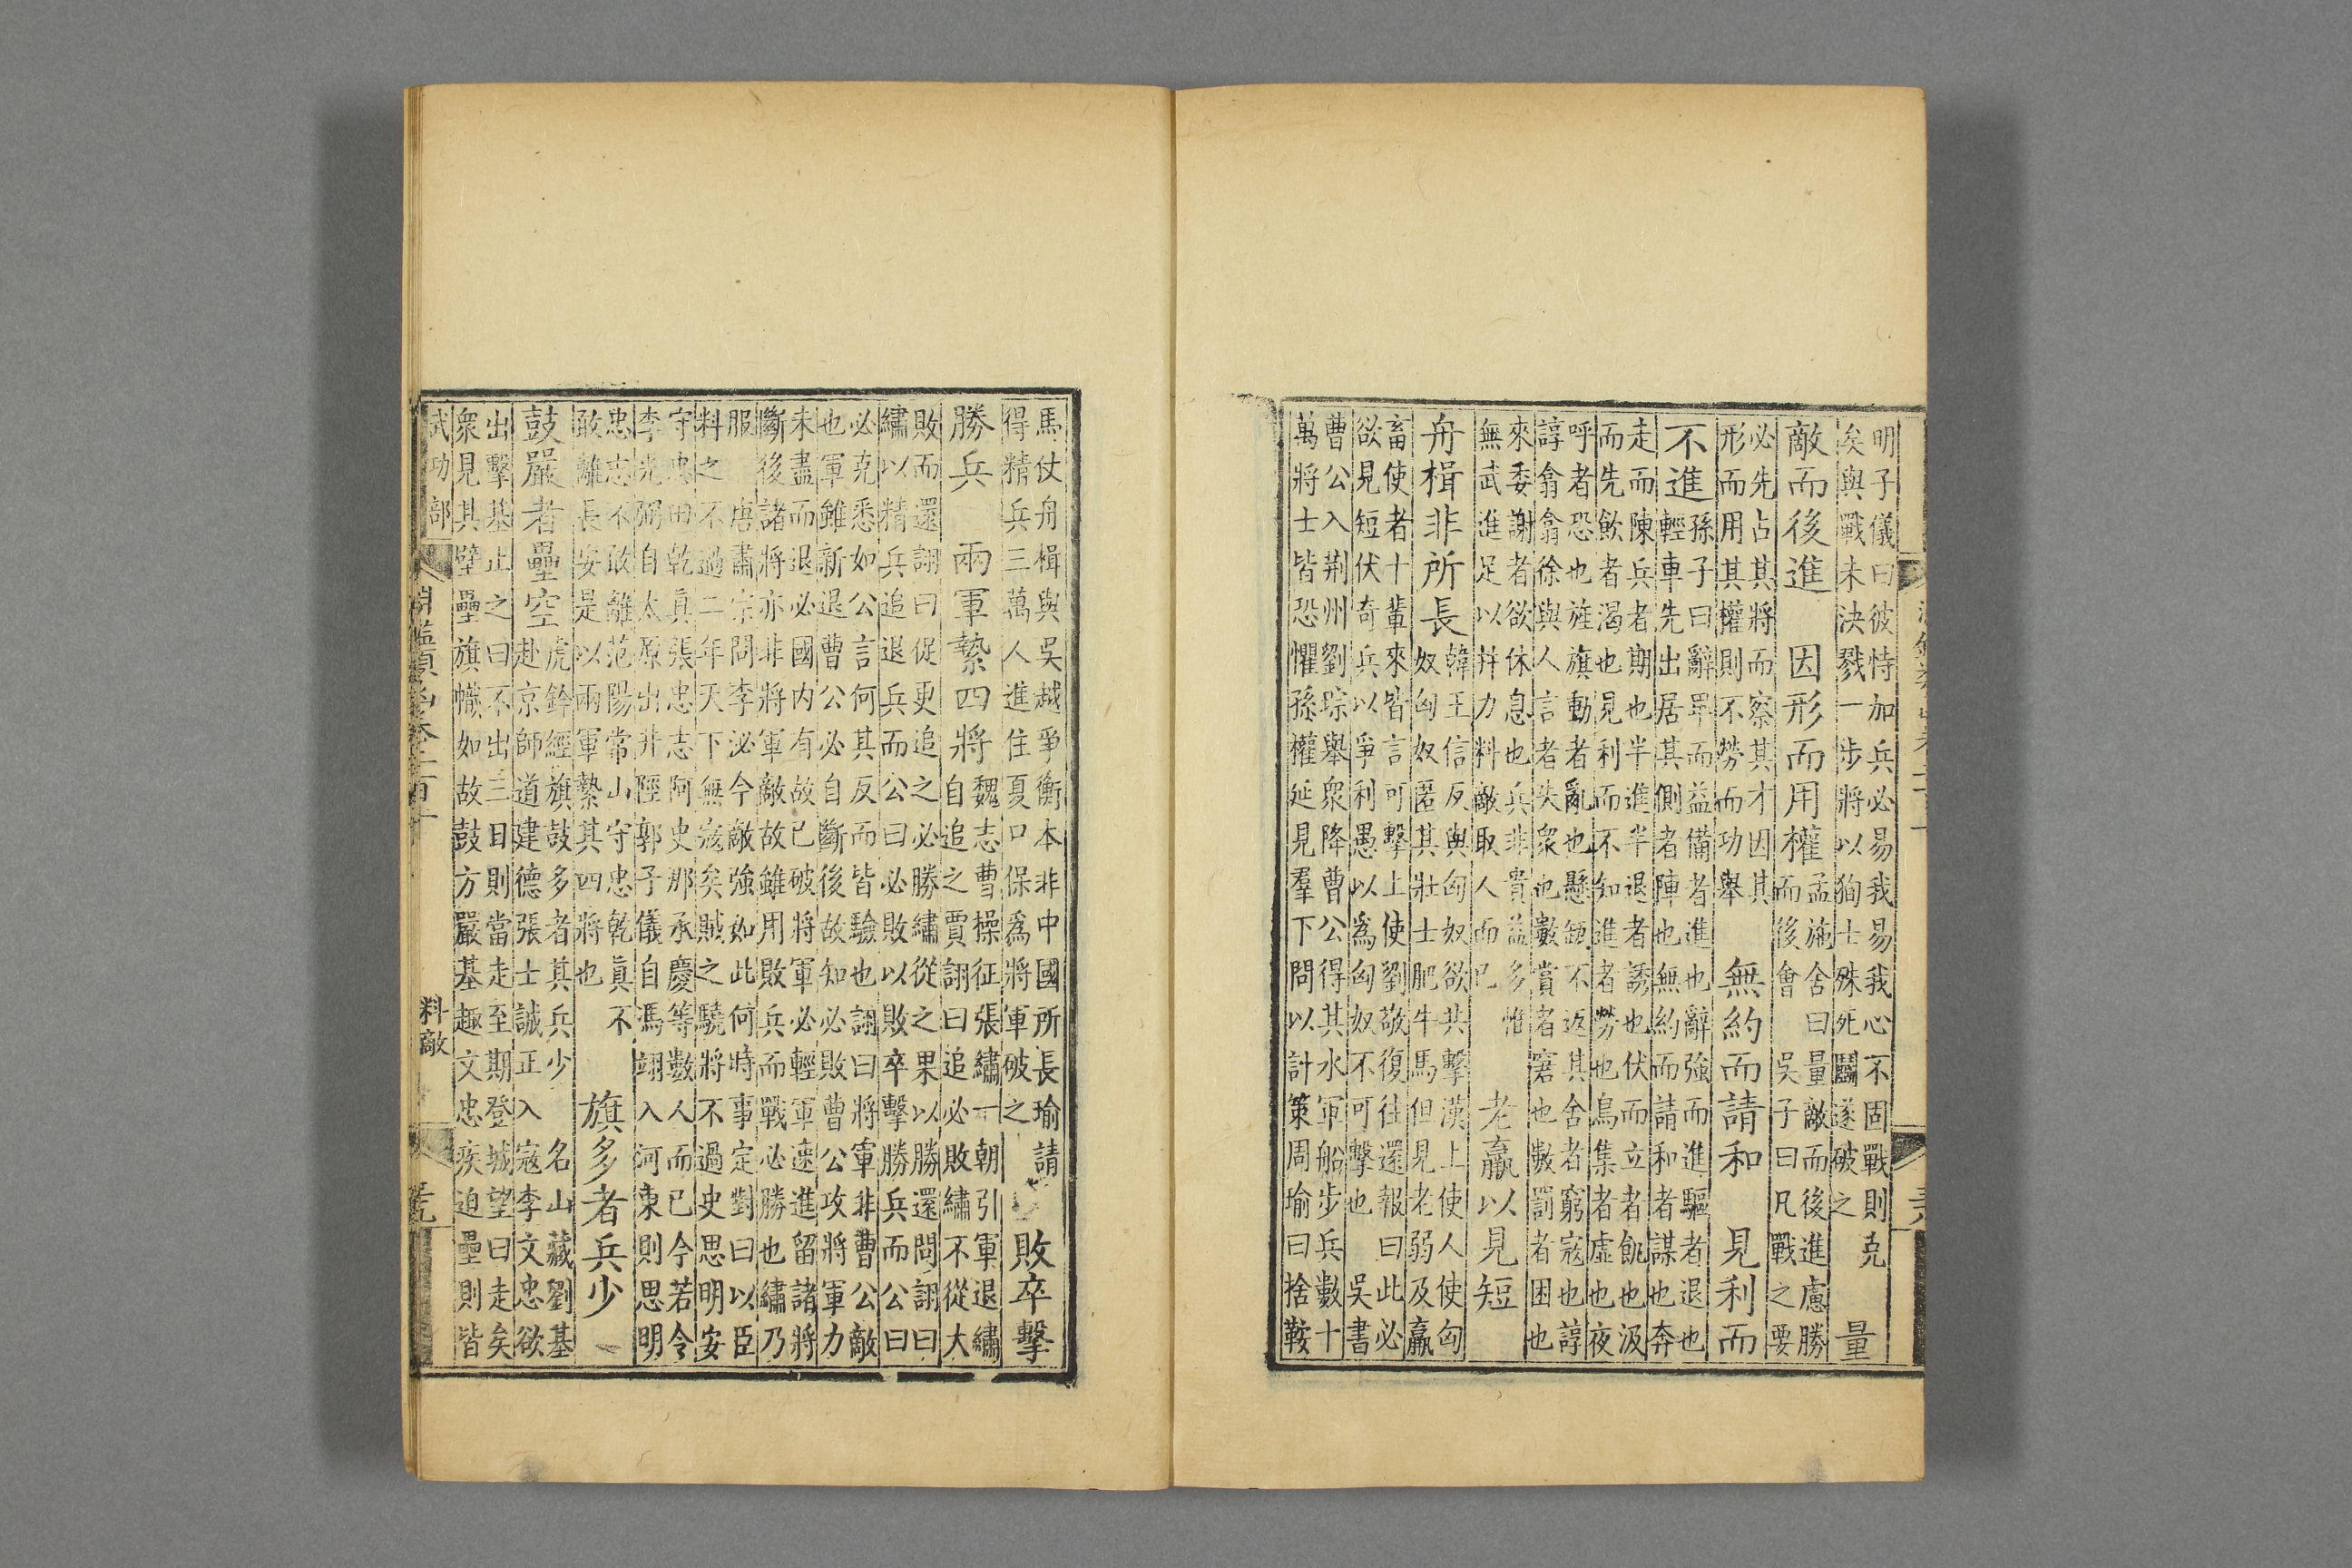 明子儀曰彼恃加兵必易我易我心不固戰則克
矣與戰未決戮一步將以狥士殊死鬬遂破之
量
敵而後進 因形而用權
孟施舍曰量敵而後進慮勝
而後會 吳子曰凡戰之要
必先占其將而察其才因其
形而用其權則不勞而功舉
無約而請和 見利而
不進
孫子曰辭卑而益備者進也辭強而進驅者退也
輕車先出居其側者陣也無約而請和者謀也奔
走而陳兵者期也半進半退者誘也伏而立者飢也汲
而先飲者渴也見利而不知進者勞也鳥集者虛也夜
呼者恐也旌旗動者亂也懸缻不返其舍者窮寇也諄
諄翕翕徐與人言者失衆也數賞者窘也數罰者困也
來委謝者欲休息也兵非貴益多惟
無武進足以并力料敵取人而已
老羸以見短
舟楫非所長
韓王信反與匈奴欲共擊漢上使人使匈
奴匈奴匿其壯士肥牛馬但見老弱及羸
畜使者十輩來皆言可擊上使劉敬復往還報曰此必
欲見短伏奇兵以爭利愚以爲匈奴不可擊也 吳書
曹公入荆州劉琮舉衆降曹公得其水軍船步兵數十
萬將士皆恐懼孫權延見羣下問以計策周瑜曰捨鞍
馬仗舟楫與吳越爭衡本非中國所長瑜請
得精兵三萬人進住夏口保爲將軍破之
敗卒擊
勝兵 兩軍縶四將
魏志曹操征張繡一朝引軍退繡
自追之賈詡曰追必敗繡不從大
敗而還詡曰促更追之必勝繡從之果以勝還問詡曰
繡以精兵追退兵而公曰必敗以敗卒擊勝兵而公曰
必克悉如公言何其反而皆驗也詡曰將軍非曹公敵
也軍雖新退曹公必自斷後故知必敗曹公攻將軍力
未盡而退必國内有故已破將軍必輕軍速進留諸將
斷後諸將亦非將軍敵故雖用敗兵而戰必勝也繡乃
服 唐肅宗問李泌今敵強如此何時事定對曰以臣
料之不過二年天下無寇矣賊之驍將不過史思明安
守忠田乾真張忠志阿史那承慶等數人而已今若令
李光弼自太原出井陘郭子儀自馮翊入河東則思明
忠志不敢離范陽常山守忠乾真不
敢離長安是以兩軍縶其四將也
旗多者兵少
鼓嚴者壘空
虎鈐經旗鼓多者其兵少 名山藏劉基
赴京師道建德張士誠正入寇李文忠欲
出擊基止之曰不出三日則當走至期登城望曰走矣
衆見其壁壘旗幟如故鼓方嚴基趣文忠疾迫壘則皆
武功部
料敵